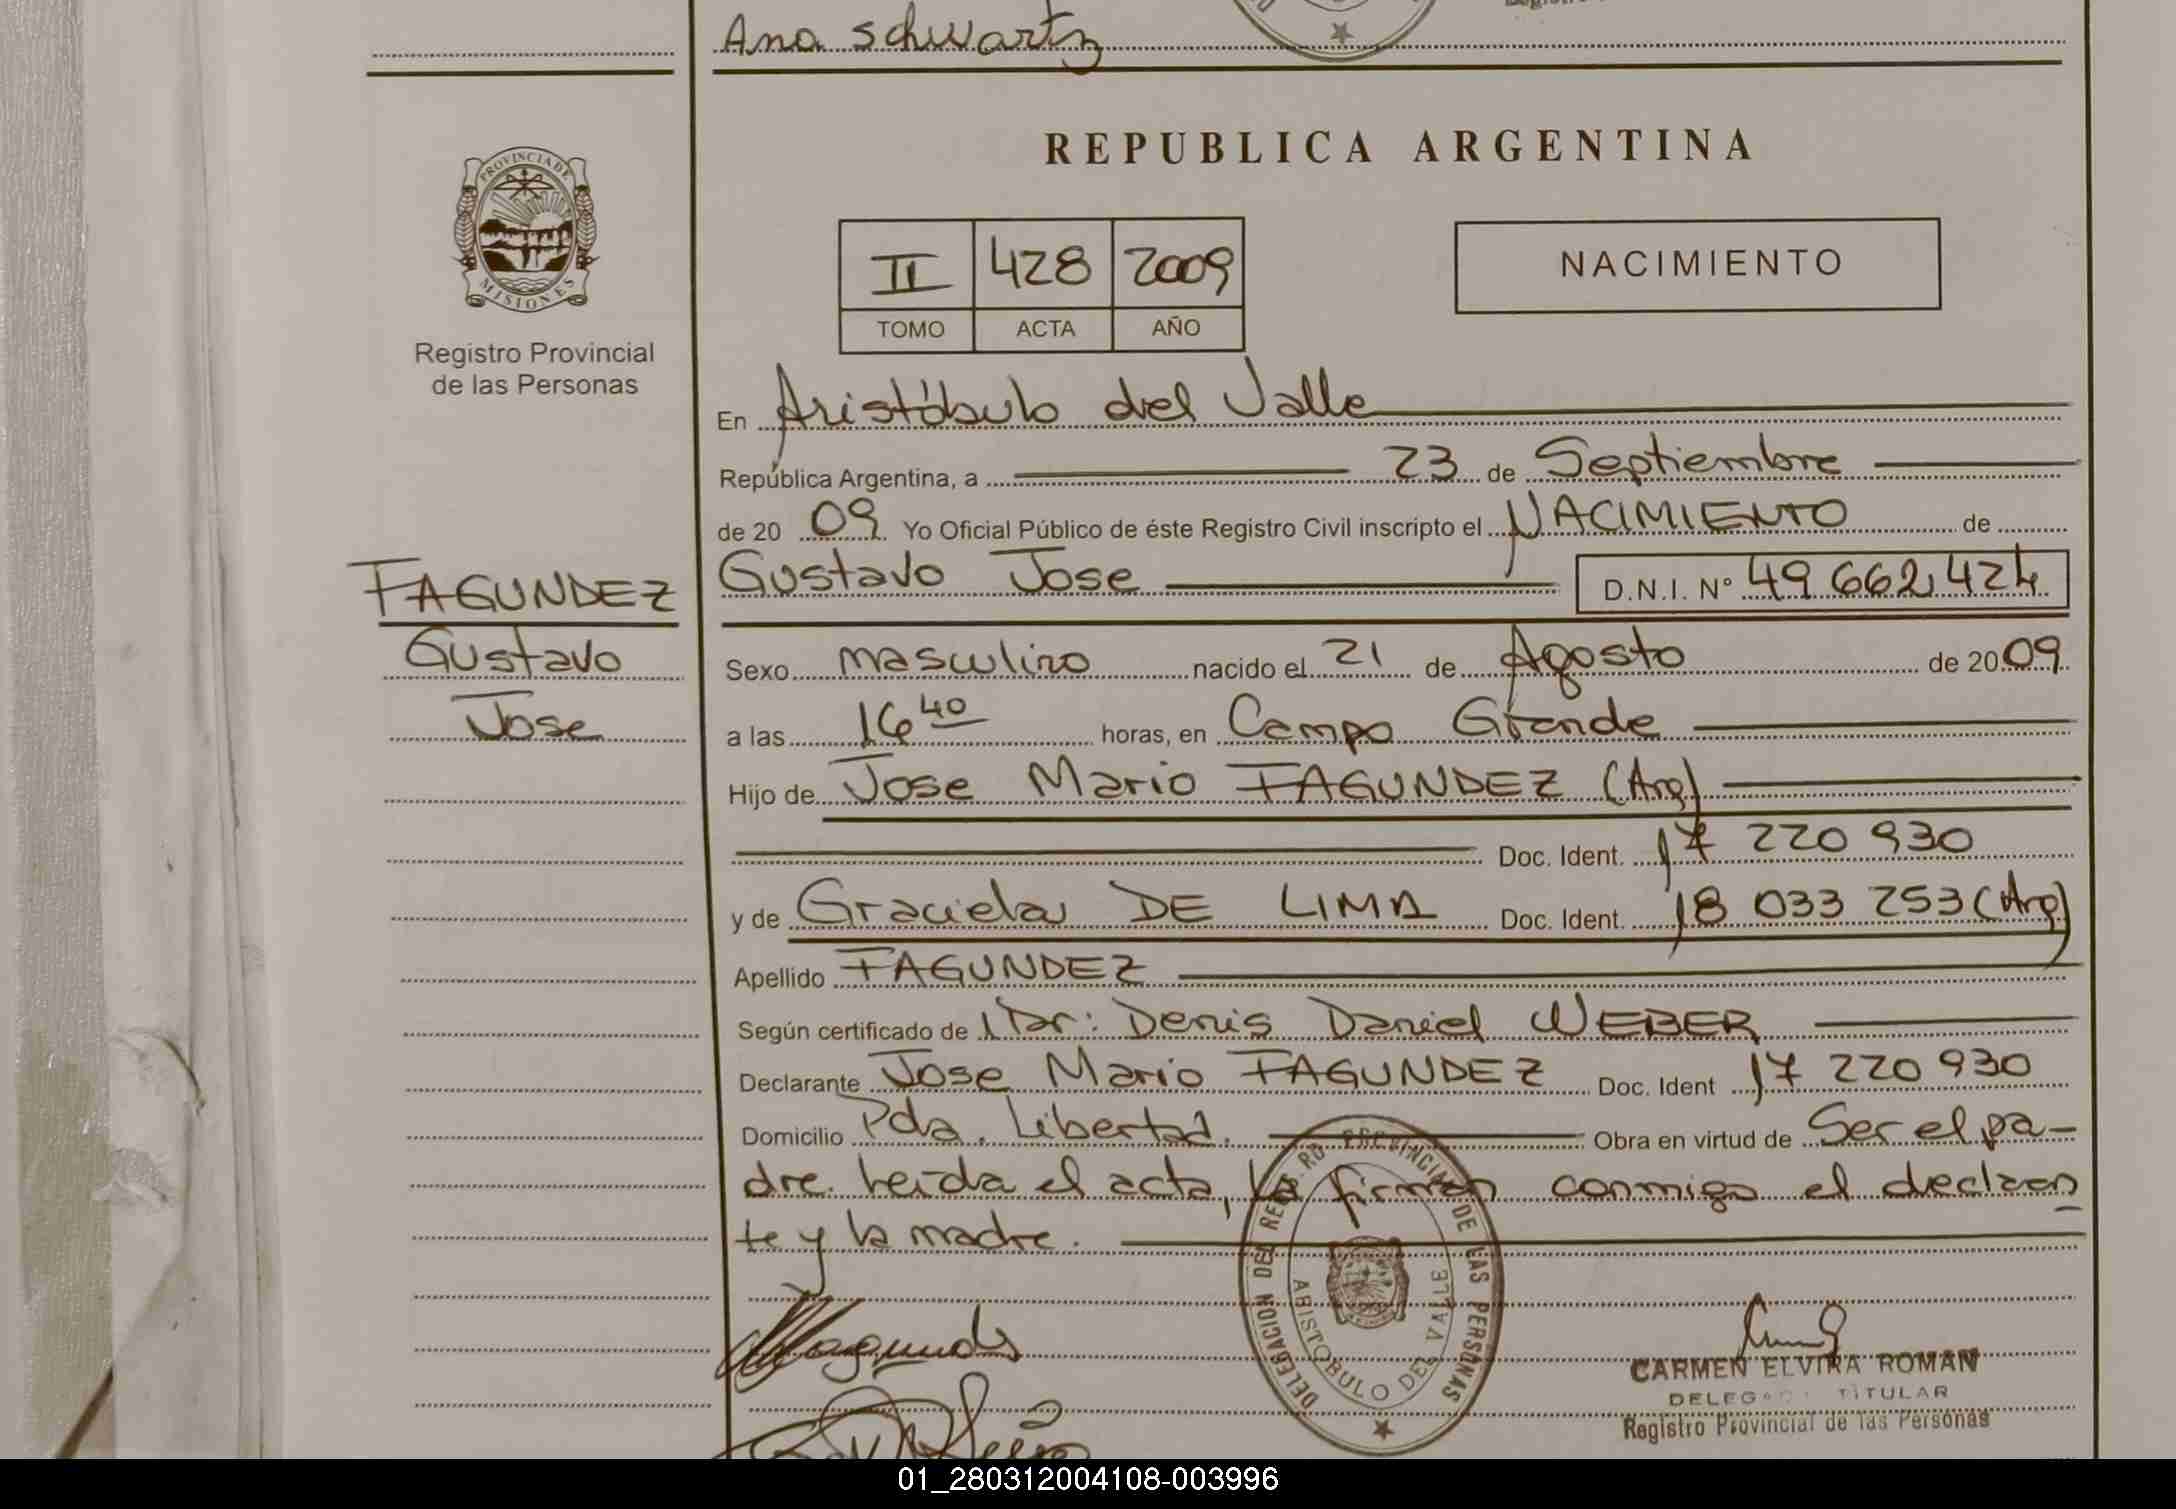 Ana Schwartz
REPUBLICA ARGENTINA
PROVINCIA DE
MISIONES
Registro Provincial
de las Personas
II 428 2009
TOMO ACTA AÑO
NACIMIENTO
En Aristóbulo del Valle
República Argentina, a 23 de Septiembre
de 20 09 Yo Oficial Público de éste Registro Civil inscripto el NACIMIENTO de
FAGUNDEZ
Gustavo
Jose
Gustavo Jose D.N.I. N° 49 662 424
Sexo masculino nacido el 21 de Agosto de 20 09
a las 16 40 horas, en Campo Grande
Hijo de Jose Mario FAGUNDEZ (Arg)
Doc. Ident. 17 220 930
y de Graciela DE LIMA Doc. Ident. 18 033 253 (Arg)
Apellido FAGUNDEZ
Según certificado de Dr: Denis Daniel WEBER
Declarante Jose Mario FAGUNDEZ Doc. Ident 17 220 930
Domicilio Pda. Libertad. Obra en virtud de Ser el pa-
dre. Leída el acta, la firman conmigo el declaran
te y la madre.
DELEGACION DEL REGISTRO PROVINCIAL DE LAS PERSONAS
ARISTOBULO DEL VALLE
CARMEN ELVIRA ROMAN
DELEGADA TITULAR
Registro Provincial de las Personas
01_280312004108-003996